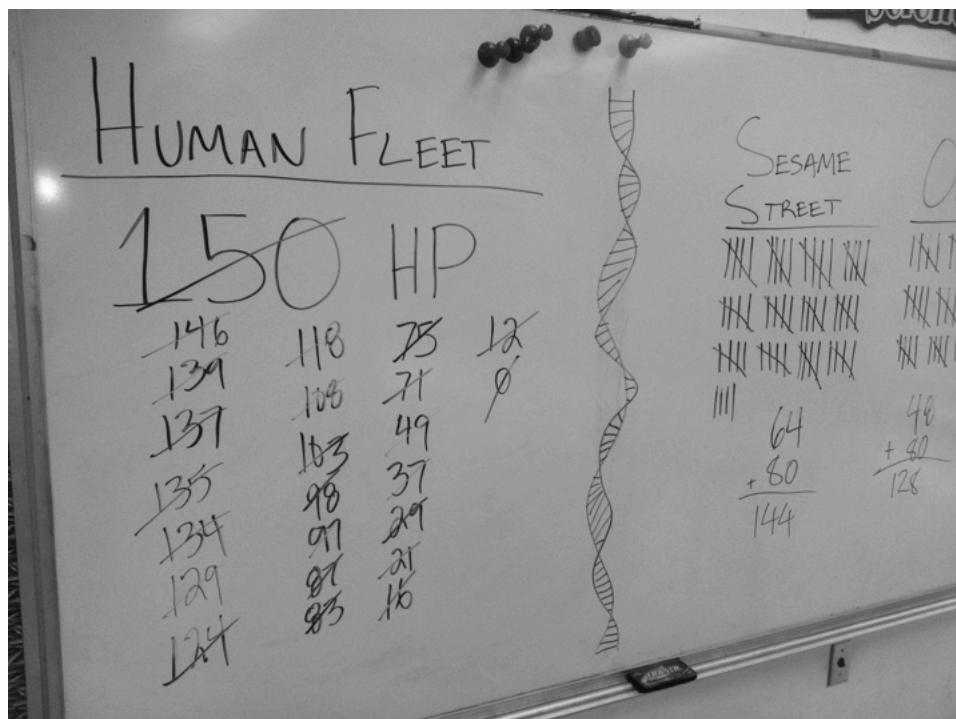 HUMAN FLEET
150 HP
146
139
137
135
134
129
124
118
108
103
98
97
87
83
75
71
49
37
29
21
16
12
0
SESAME
STREET
64
+ 80
144
48
+ 80
128